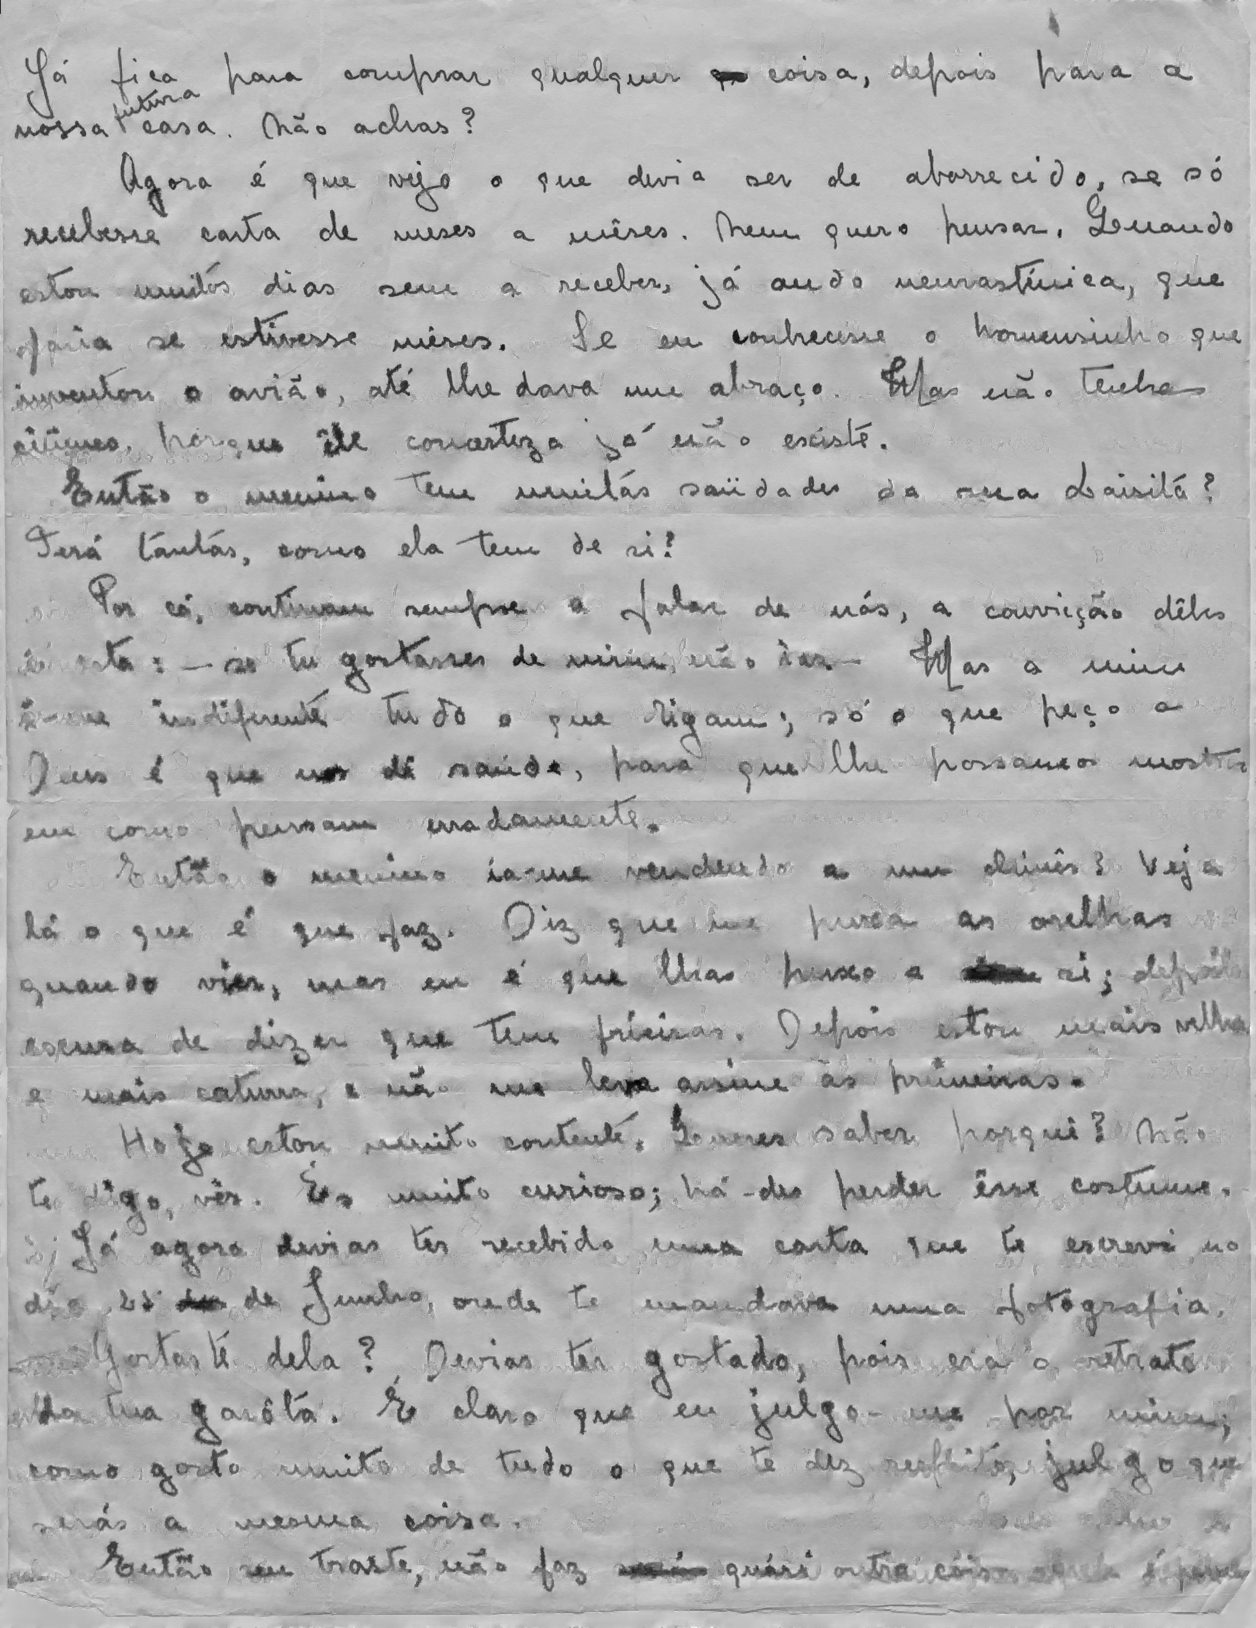 Já fica para comprar qualquer coisa, depois para a
nossa futura casa. Não achas?
Agora é que vejo o que devia ser de aborrecido, se só
recebesse carta de meses a mêses. Nem quero pensar. Quando
estou muitos dias sem a receber, já ando neurasténica, que
faria se estivesse mêses. Se eu conhecesse o homensinho que
inventou o avião, até lhe dava um abraço. Mas não tenhas
ciúmes, porque êle concerteza já não existe.
Então o menino tem muitas saüdades da sua Luisita?
Terá tántas, como ela tem de si?
Por cá, continuam sempre a falar de nós, a convicção dêles
é esta: — se tu gostasses de mim, não ias — Mas a mim
é-me indiferente tudo o que digam; só o que peço a
Deus é que nos dê saúde, para que lhe possamos mostrar
em como pensam erradamente.
Então o menino ia-me vendendo a um chinês? Veja
lá o que é que faz. Diz que me puxa as orelhas
quando vier, mas eu é que lhas puxo a si; depois
escusa de dizer que tem frieiras. Depois estou mais velha
e mais caturra, e não me leva assim às primeiras.
Hoje estou muito contente. Queres saber porquê? Não
te digo, vês. És muito curioso; há-des perder êsse costume.
Já agora devias ter recebido uma carta que te escrevi no
dia de Junho, onde te mandava uma fotografia.
Gostaste dela? Devias ter gostado, pois era o retrato
da tua garôta. É claro que eu julgo-me por mim;
como gosto muito de tudo o que te diz respeito, julgo que
serás a mesma coisa.
Então seu traste, não faz quási outra coisa